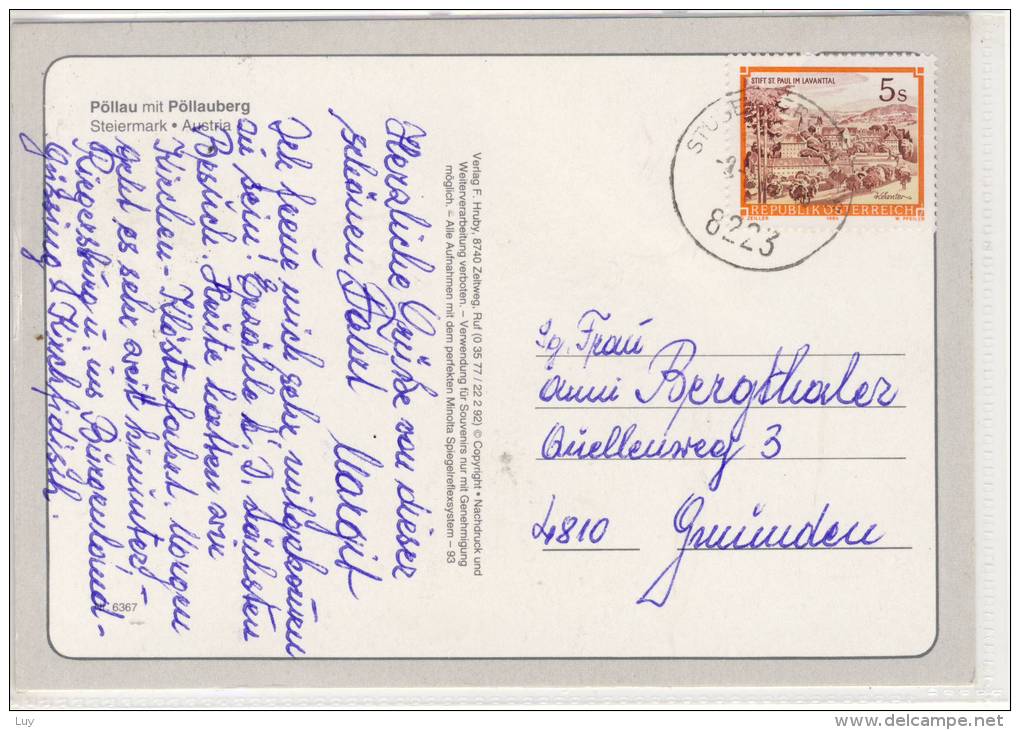 Pöllau mit Pöllauberg
Steiermark • Austria
Herzliche Grüße von dieser
schönen Fahrt Margit
Ich freue mich sehr mitgekommen
zu sein! Erzähle b. d. nächsten
Besuch. Heute hatten wir
Kirchen-Klösterfahrt. Morgen
geht es sehr weit hinunter-
Riegersburg u. ins Burgenland-
Güssing & Kirchfidisch.
6367
Verlag F. Hruby, 8740 Zeltweg, Ruf (0 35 77 / 22 2 92) © Copyright • Nachdruck und
Weiterverarbeitung verboten. – Verwendung für Souvenirs nur mit Genehmigung
möglich. – Alle Aufnahmen mit dem perfekten Minolta Spiegelreflexsystem – 93
STIFT ST. PAUL IM LAVANTTAL
5s
REPUBLIK ÖSTERREICH
ZEILER
W. PFEILER
8223
Sg. Frau
Anni Bergthaler
Quellenweg 3
4810 Gmünden
Luy
delcampe.net